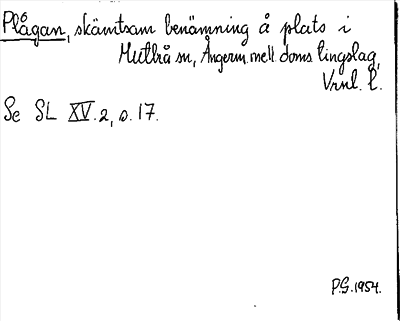 Plågan, skämtsam benämning å plats i
Multrå sn, Ångerm. mell. doms. tingslag,
Vrnl. l.
Se SL XV.2, s. 17.
P.G. 1954.